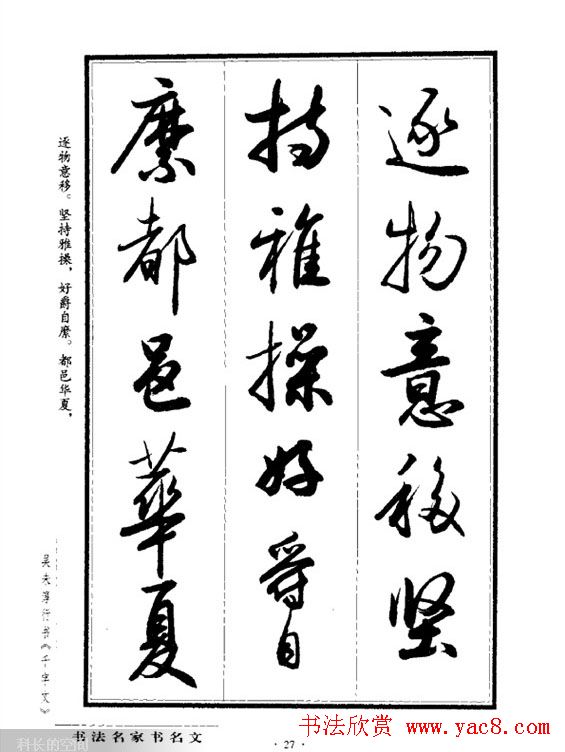 逐物意移坚
持雅操好爵自
縻都邑華夏
逐物意移。坚持雅操，好爵自縻。都邑华夏，
吴未淳行书《千字文》
书法名家书名文
· 27 ·
科长的空间
书法欣赏 www.yac8.com